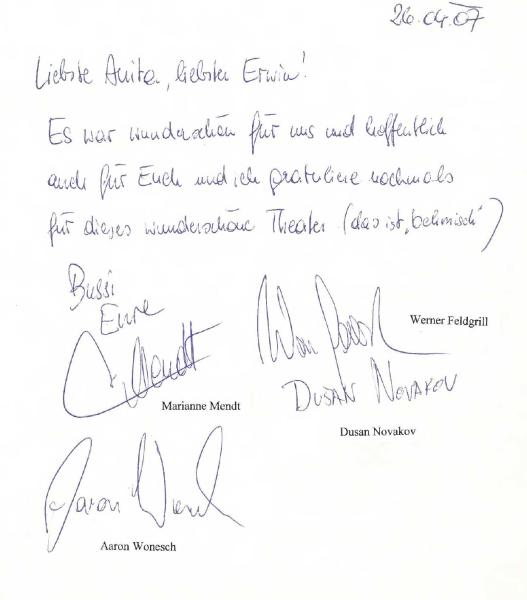 26.04.07
Liebste Anita, liebster Erwin!
Es war wunderschön für uns und hoffentlich
auch für Euch und ich gratuliere nochmals
für dieses wunderschöne Theater (das ist „behmisch“)
Bussi
Eure
M. Mendt
Marianne Mendt
Werner Feldgrill
DUSAN NOVAKOV
Dusan Novakov
Aaron Wonesch
Aaron Wonesch